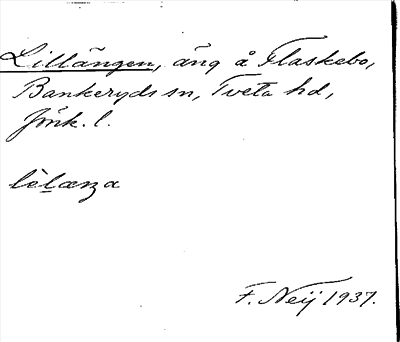 Lillängen, äng å Flaskebo,
Bankeryds sn, Tveta hd,
Jönk. l.
lèlæŋa
F. Neij 1937.